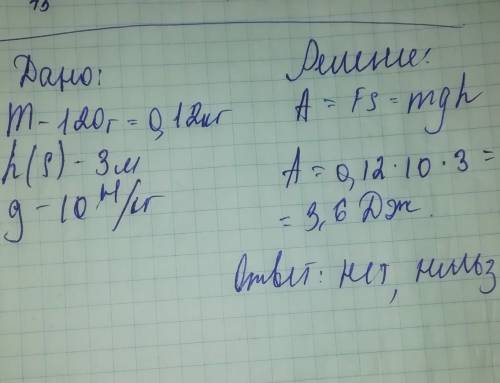 Дано:
m - 120г = 0,12кг
h(s) - 3м
g - 10 Н/кг
Решение:
A = FS = mgh
A = 0,12 · 10 · 3 =
= 3,6 Дж.
Ответ: нет, нильз